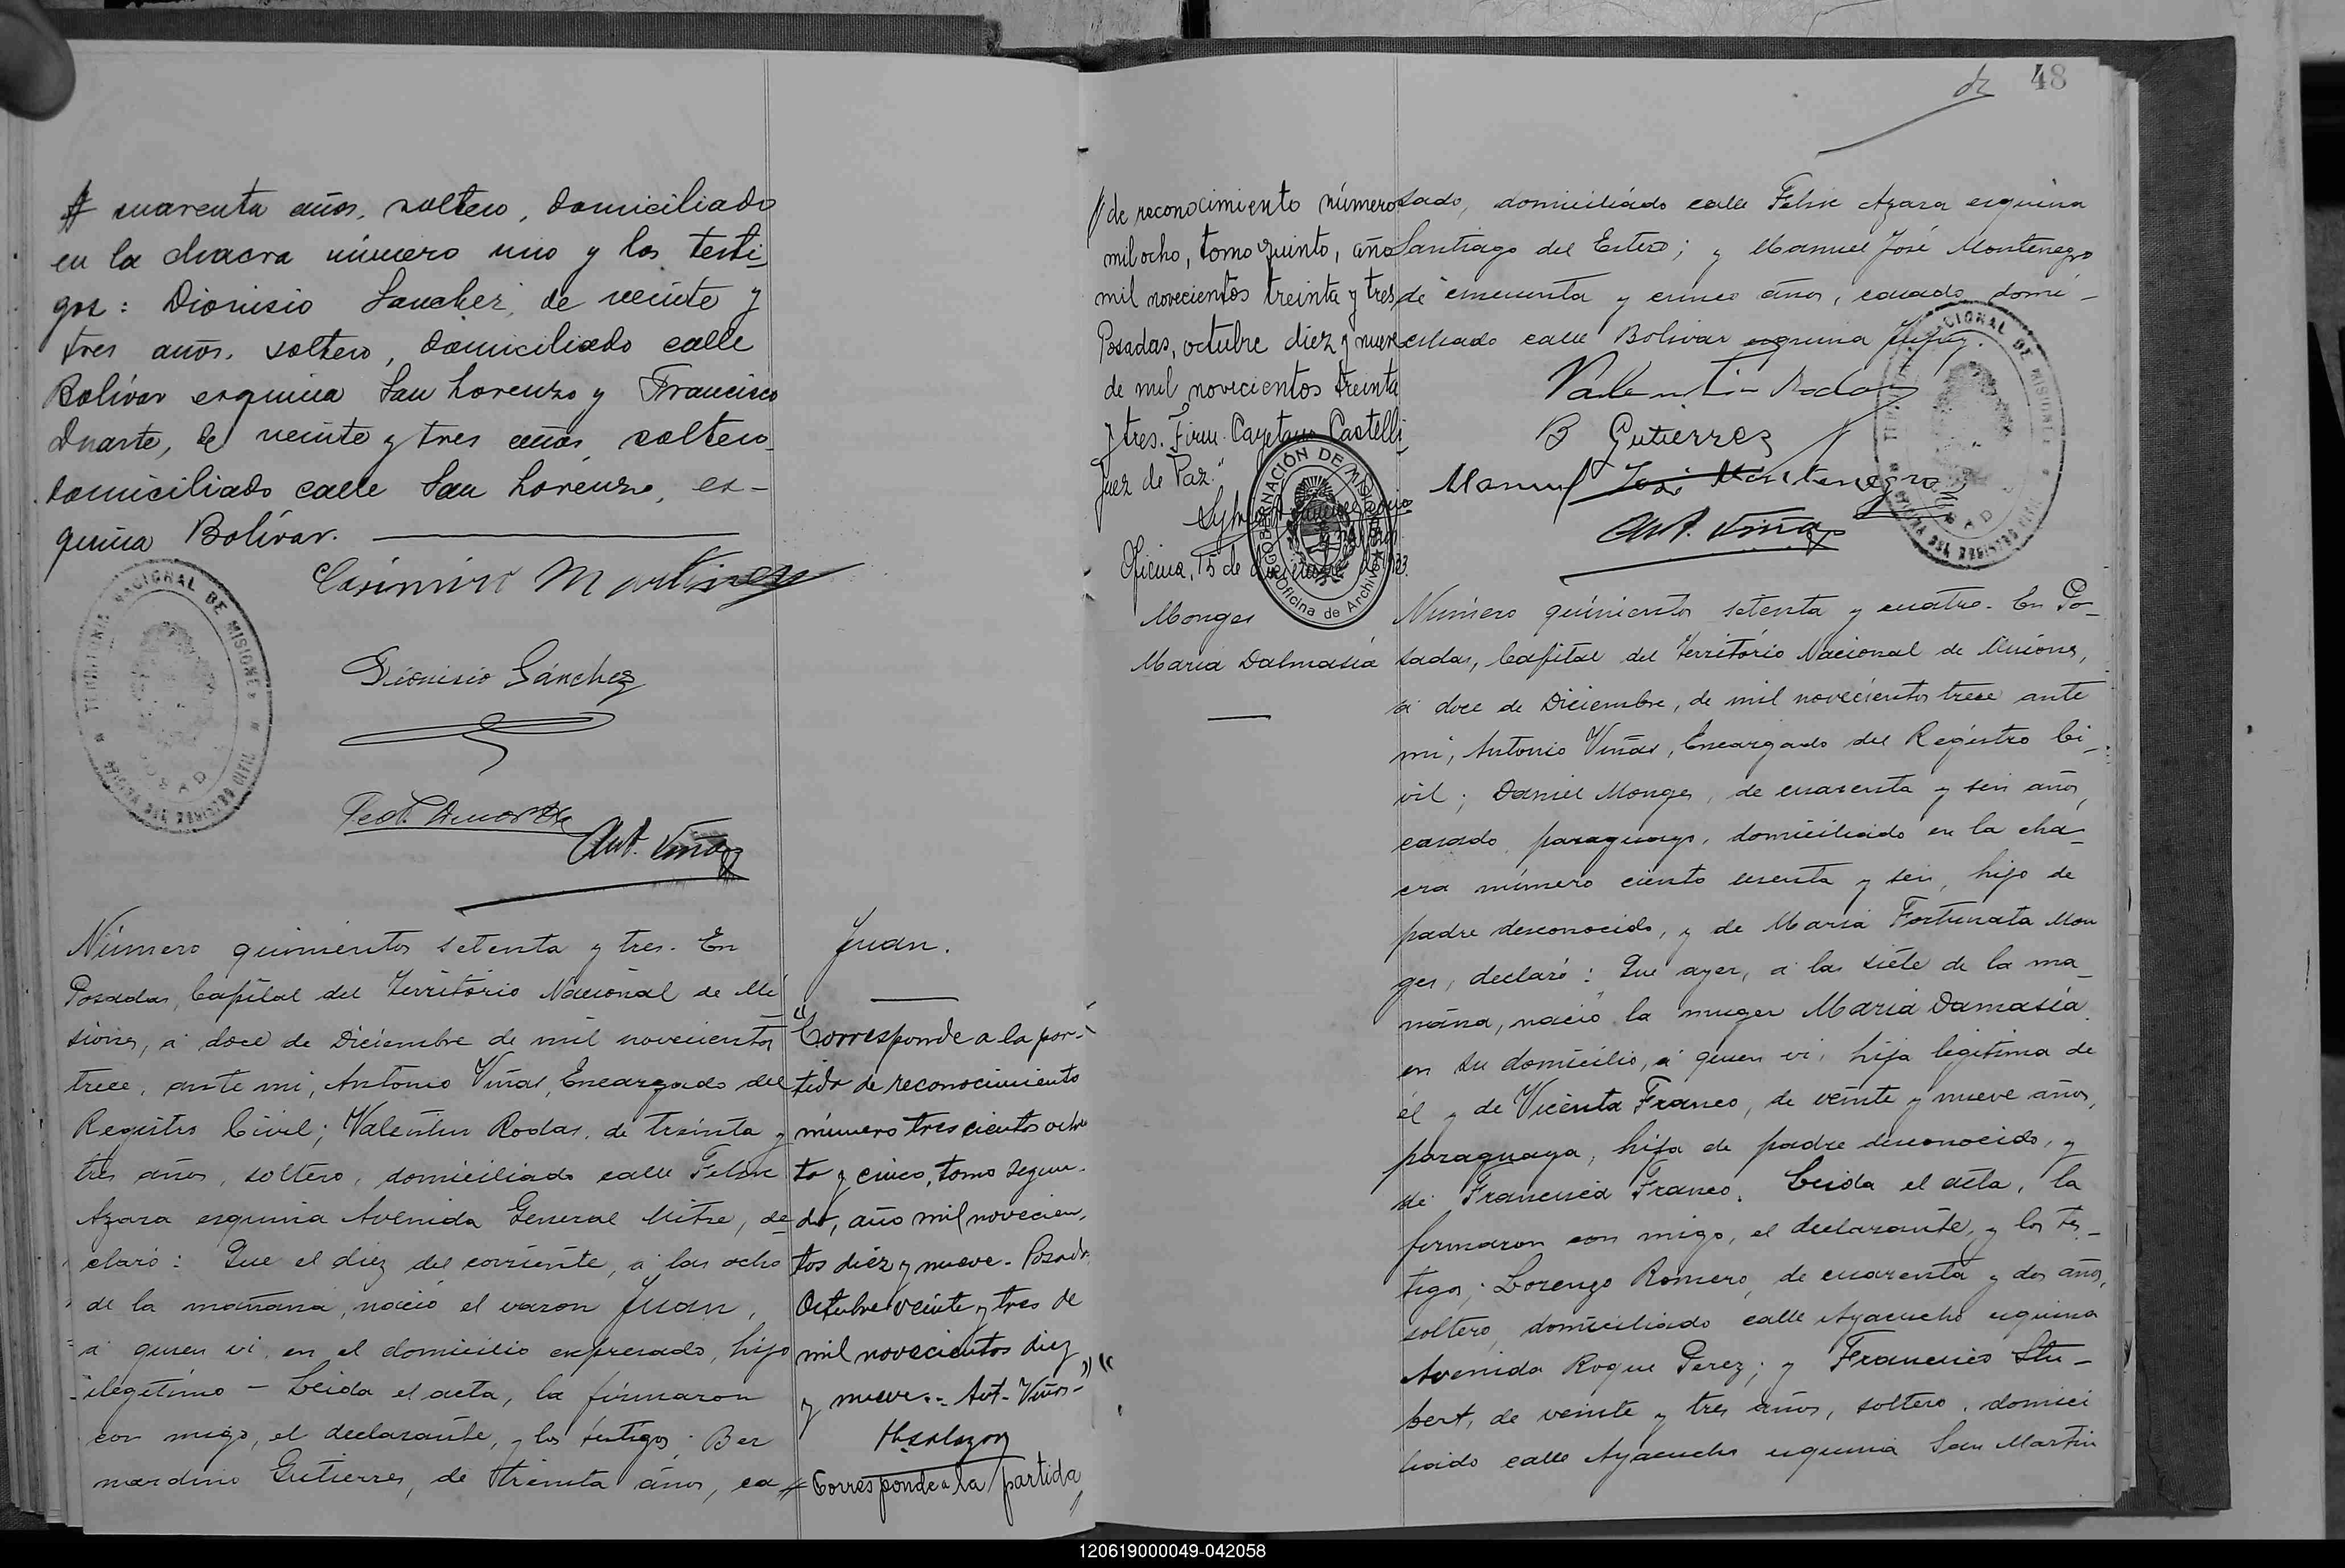 cuarenta años, soltero, domiciliado
en la chacra número uno y los testi-
gos: Dionisio Sanchez, de veinte y
tres años, soltero, domiciliado calle
Bolívar esquina San Lorenzo y Francisco
Duarte, de veinte y tres años, soltero
domiciliado calle San Lorenzo, es-
quina Bolívar.
Casimiro Martinez
TERRITORIO NACIONAL DE MISIONES
OFICINA DEL REGISTRO CIVIL
POSADAS
Dionisio Sánchez
Duarte
Ant. Viñas
Número quinientos setenta y tres. En
Posadas, Capital del Territorio Nacional de Mi
siones, á doce de Diciembre de mil novecientos
trece, ante mi, Antonio Viñas, Encargado del
Registro Civil; Valentin Rodas, de treinta y
tres años, soltero, domiciliado calle Felix
Azara esquina Avenida General Mitre, de-
claró: Que el diez del corriente, á las ocho
de la mañana, nació el varon Juan,
á quien vi, en el domicilio expresado, hijo
ilegitimo - Leida el acta, la firmaron
con migo, el declarante, y los testigos: Ber
nardino Gutierres, de treinta años, ca
Juan.
"Corresponde a la par-
tida de reconocimiento
número trescientos ochen
ta y cinco, tomo segun-
do, año mil novecien-
tos diez y nueve. Posadas
Octubre veinte y tres de
mil novecientos diez
y nueve.- Ant. Viñas-"
Corresponde a la partida
48
de reconocimiento número
mil ocho, tomo quinto, año
mil novecientos treinta y tres
Posadas, octubre diez y nueve
de mil novecientos treinta
y tres. Firm. Cayetano Castelli
Juez de Paz."
GOBERNACIÓN DE MISIONES
Oficina de Archivo
Oficina, 15 de diciembre de 1933.
Monges
Maria Dalmasia
sado, domiciliado calle Felix Azara esquina
Santiago del Estero; y Manuel José Montenegro
de cincuenta y cinco años, casado, domi-
ciliado calle Bolivar esquina Jujuy.
Valentin Rodas
B Gutierrez
Manuel José Montenegro
Ant. Viñas
TERRITORIO NACIONAL DE MISIONES
OFICINA DEL REGISTRO CIVIL
POSADAS
Número quinientos setenta y cuatro. En Po-
sadas, Capital del Territorio Nacional de Misiones,
á doce de Diciembre, de mil novecientos trece ante
mi, Antonio Viñas, Encargado del Registro Ci-
vil; Daniel Monges, de cuarenta y seis años,
casado, paraguayo, domiciliado en la cha-
cra número ciento sesenta y seis, hijo de
padre desconocido, y de Maria Fortunata Mon
ges, declaró: Que ayer, á las siete de la ma-
ñana, nació la muger Maria Damasia
en su domicilio, á quien vi, hija legitima de
él y de Vicenta Franco, de veinte y nueve años,
paraguaya, hija de padre desconocido, y
de Francisca Franco. Leida el acta, la
firmaron con migo, el declarante, y los tes-
tigos; Lorenzo Romero, de cuarenta y dos años,
soltero, domiciliado calle Ayacucho esquina
Avenida Roque Perez; y Francisco Stu-
bert, de veinte y tres años, soltero, domici
liado calle Ayacucho esquina San Martin
120619000049-042058